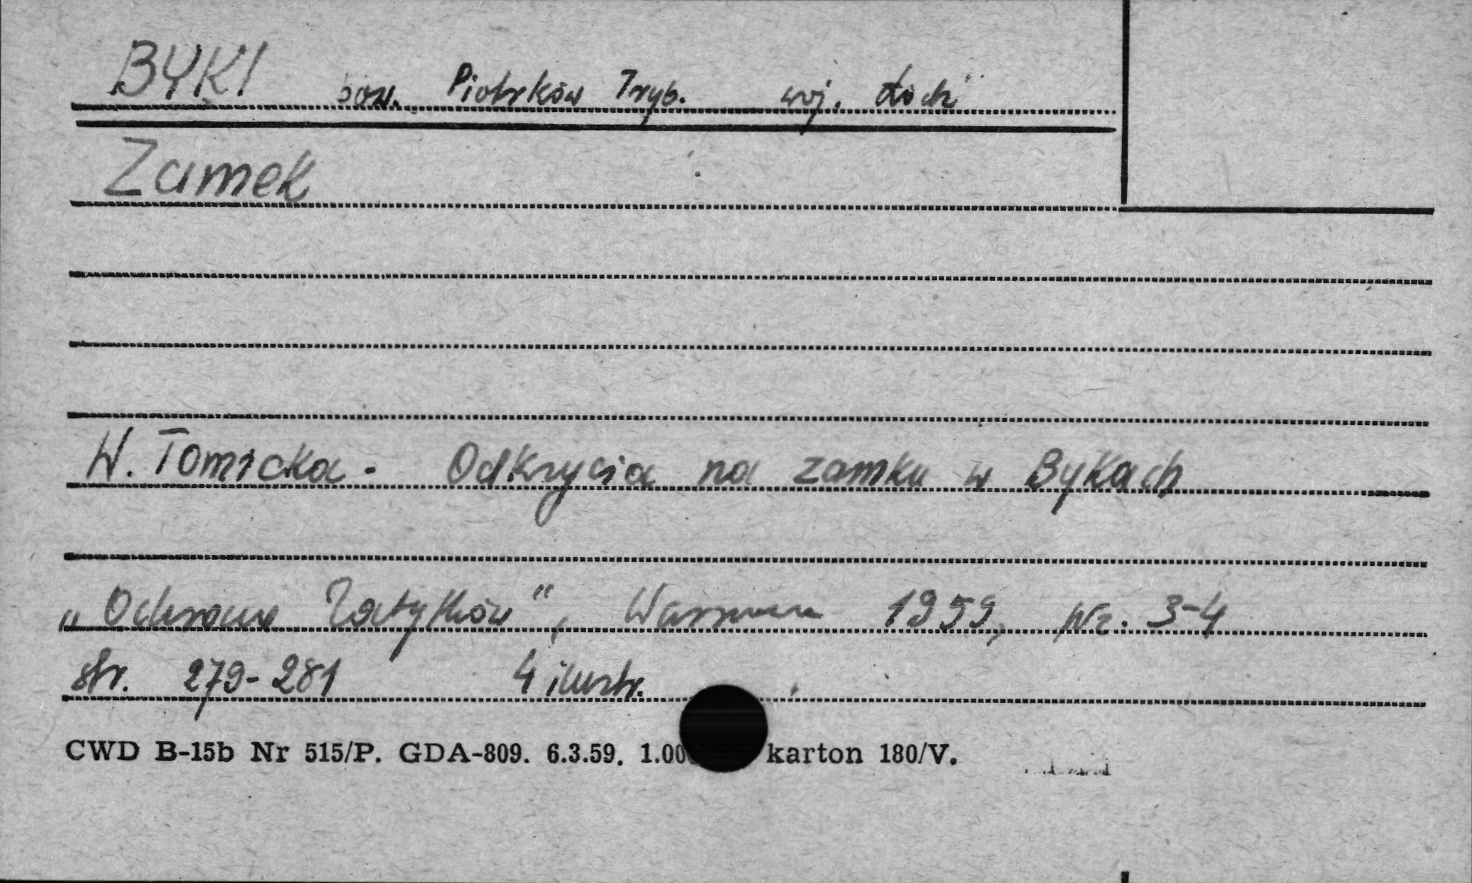 BYKI pow. Piotrków Tryb. woj. Łódź
Zamek
W. Tomicka. Odkrycia na zamku w Bykach
„Ochrona Zabytków", Warszawa 1959, Nr. 3-4
str. 279-281 4 ilustr.
CWD B-15b Nr 515/P. GDA-809. 6.3.59. 1.00 karton 180/V.